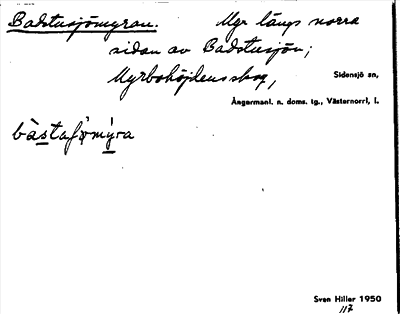 Badstusjömyran. Myr längs norra
sidan av Badstusjön;
Myrbohöjdens skog,
Sidensjö sn,
Ångermanl. n. doms. tg., Västernorrl, l.
bàstafömýra
Sven Hiller 1950
117